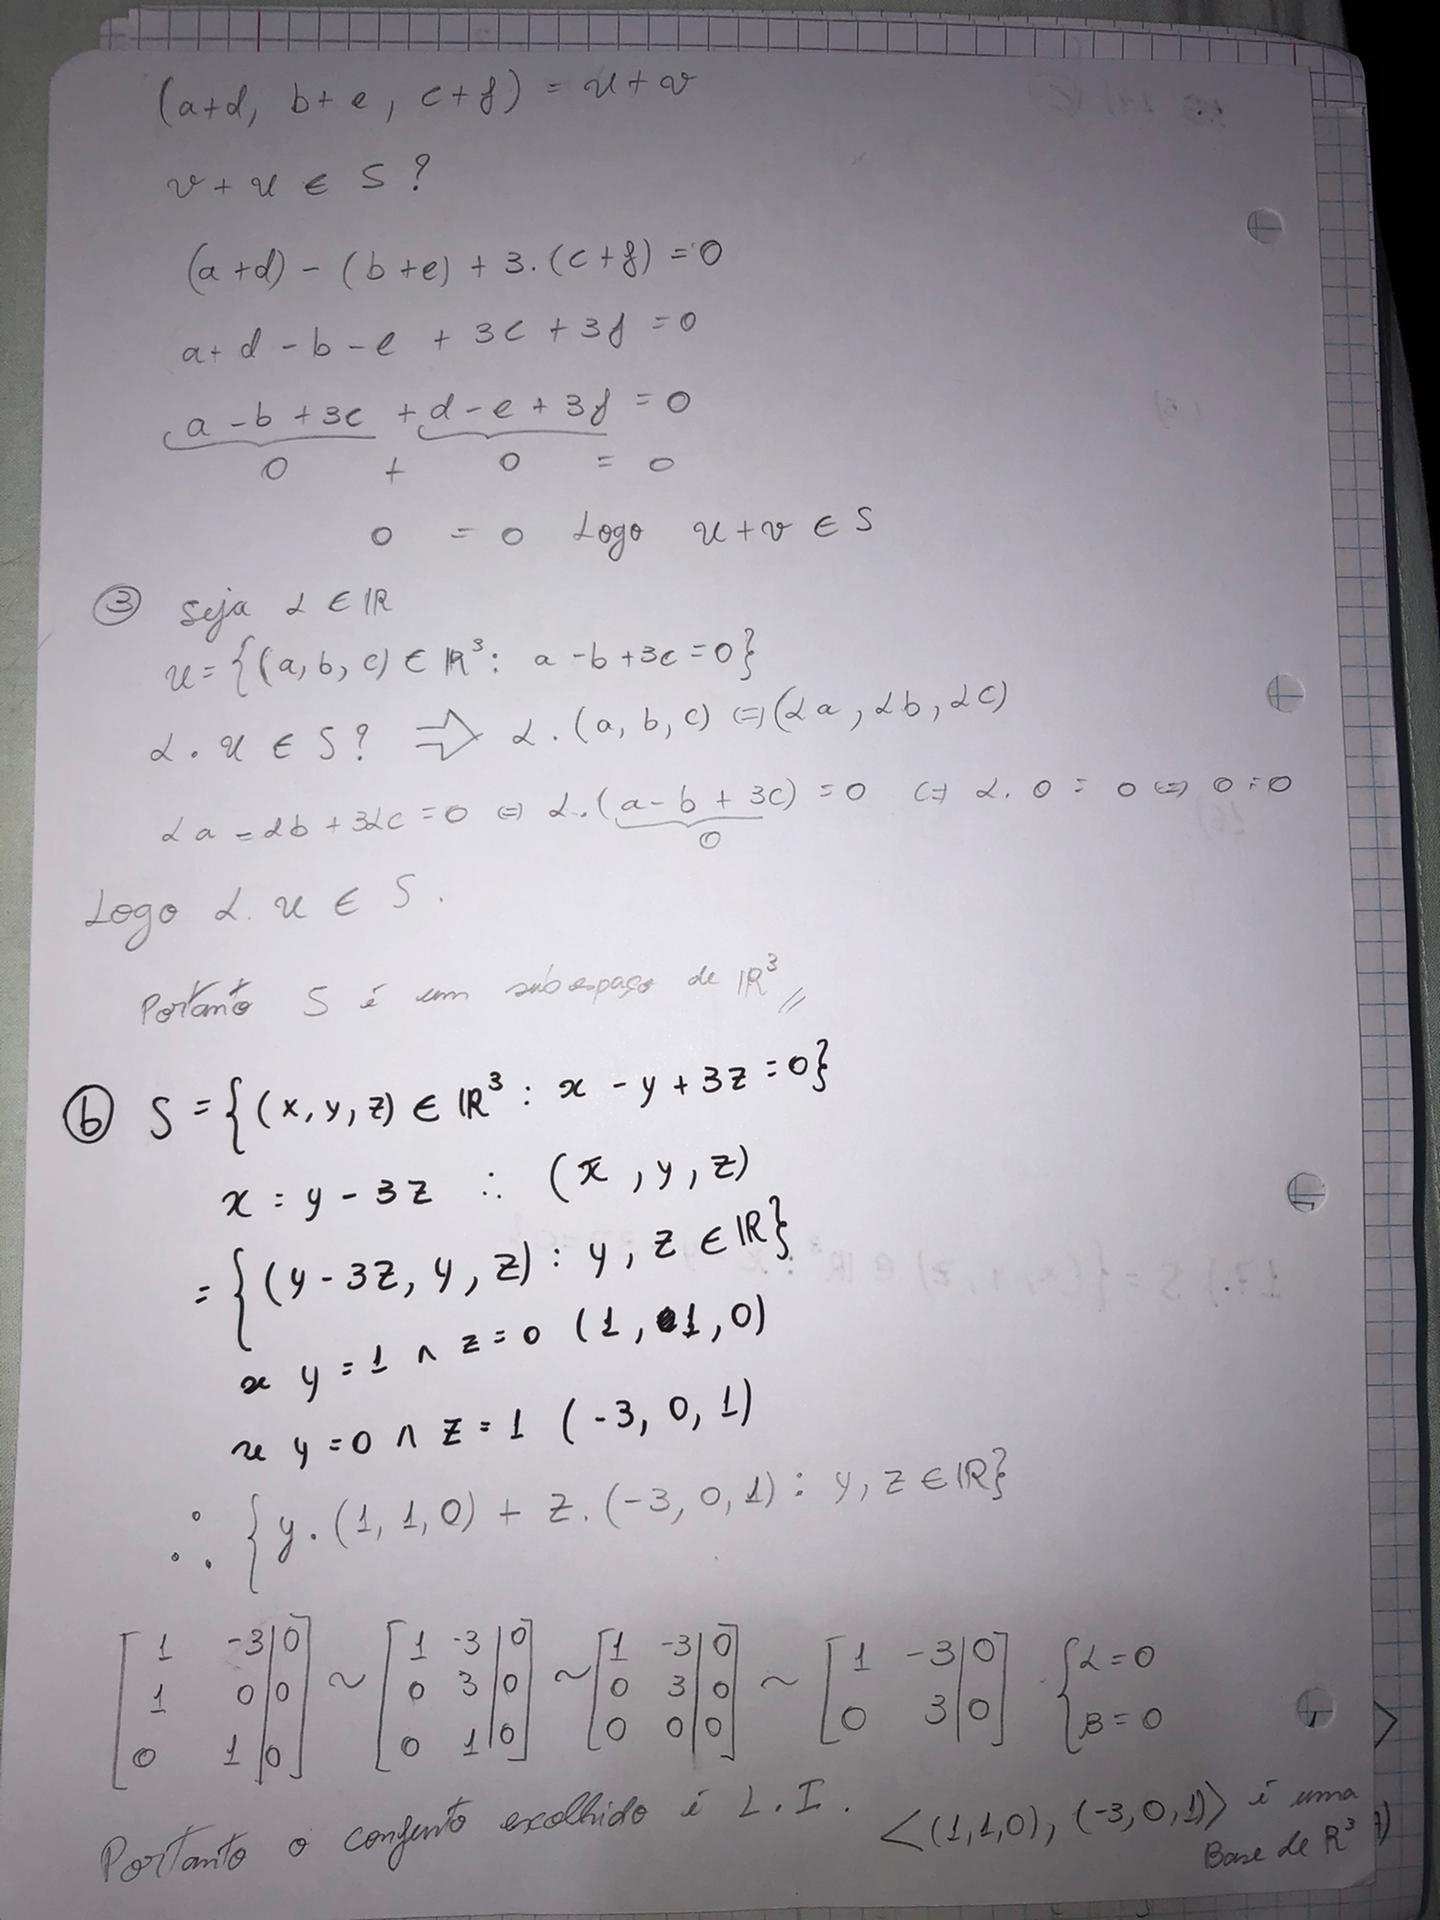 (a+d, b+e, c+f) = u+v
v+u ∈ S?
(a+d) - (b+e) + 3.(c+f) = 0
a+d - b - e + 3c + 3f = 0
a - b + 3c + d - e + 3f = 0
0 + 0 = 0
0 = 0 Logo u+v ∈ S
③ Seja α ∈ ℝ
u = {(a, b, c) ∈ ℝ³: a - b + 3c = 0}
α. u ∈ S? ⇒ α. (a, b, c) ⇔ (αa, αb, αc)
αa - αb + 3αc = 0 ⇔ α.(a - b + 3c) = 0 ⇔ α. 0 = 0 ⇔ 0 = 0
0
Logo α. u ∈ S.
Portanto S é um subespaço de ℝ³ //
ⓑ S = {(x, y, z) ∈ ℝ³ : x - y + 3z = 0}
x = y - 3z ∴ (x, y, z)
= {(y - 3z, y, z) : y, z ∈ ℝ}
x y = 1 ∧ z = 0 (1, 1, 0)
x y = 0 ∧ z = 1 (-3, 0, 1)
∴ {y. (1, 1, 0) + z. (-3, 0, 1) : y, z ∈ ℝ}
[1 -3|0] ~ [1 -3|0] ~ [1 -3|0] ~ [1 -3|0] {α = 0
[1 0|0] [0 3|0] [0 3|0] [0 3|0] β = 0
[0 1|0] [0 1|0] [0 0|0]
Portanto o conjunto escolhido é L.I. <(1,1,0), (-3,0,1)> é uma
Base de R³